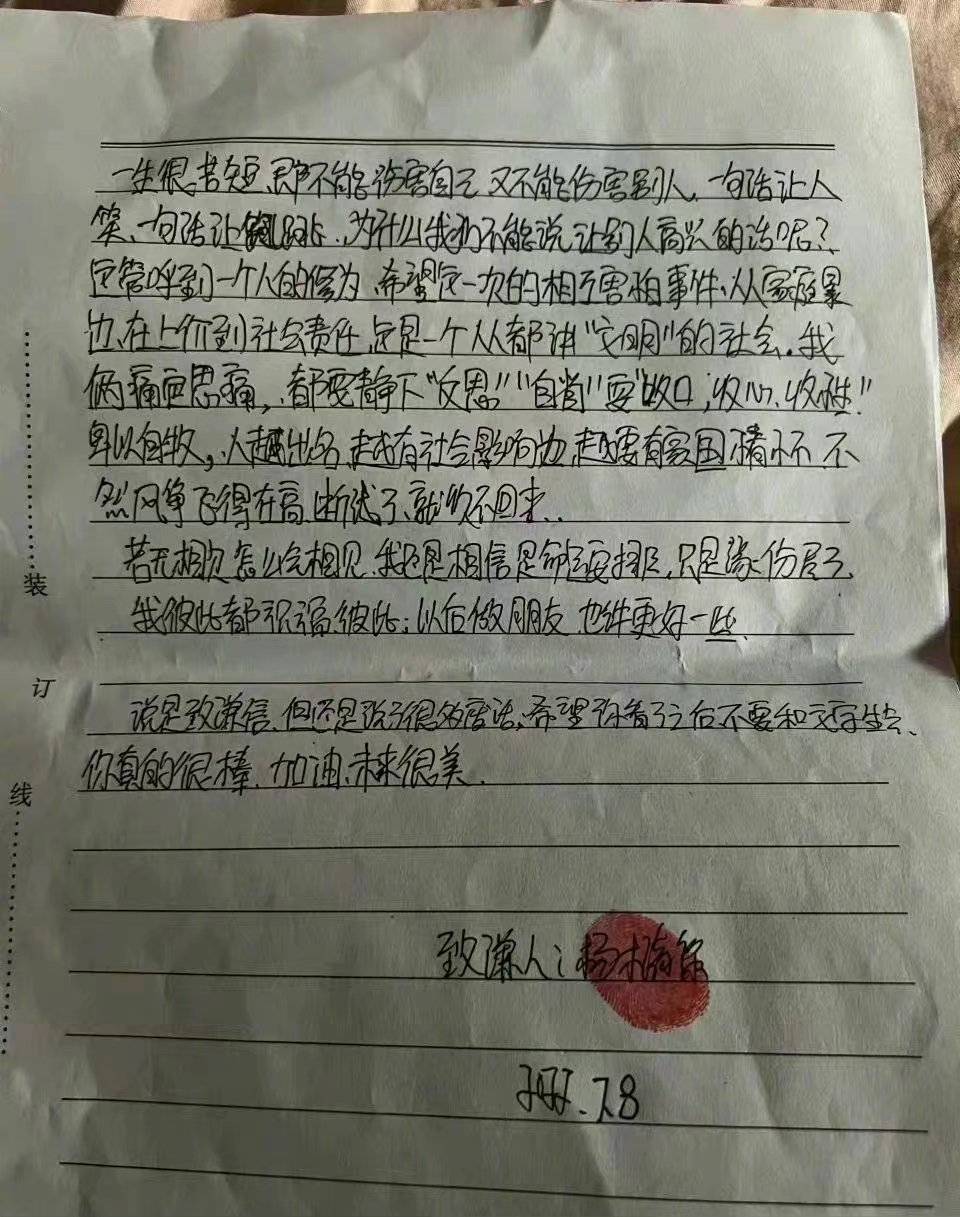 一生很苦短,即不能伤害自己 又不能伤害别人,一句话让人
笑、一句话让人跳,为什么我们不能说让别人高兴的话呢?
这管呼到一个人的修为,希望这一次的相互害怕事件,从家庭暴
力,在上价到社会责任,这是一个人人都讲"文明"的社会。我
俩痛定思痛,都要静下"反思""自省"要"收口,收心,收性"!
卑以自牧,人越出名,越有社会影响力,越要有家国情怀 不
然风筝飞得在高,断线了,就收不回来.
若无相欠怎么会相见,我还是相信是命运安排,只是缘份尽了,
我彼此都祝福彼此;以后做朋友 也许更好一些.
说是致谦信,但还是说了很多废话,希望你看了之后不要和文字生气、
你真的很棒,加油,未来很美.
装
订
线
致谦人:杨
7.8